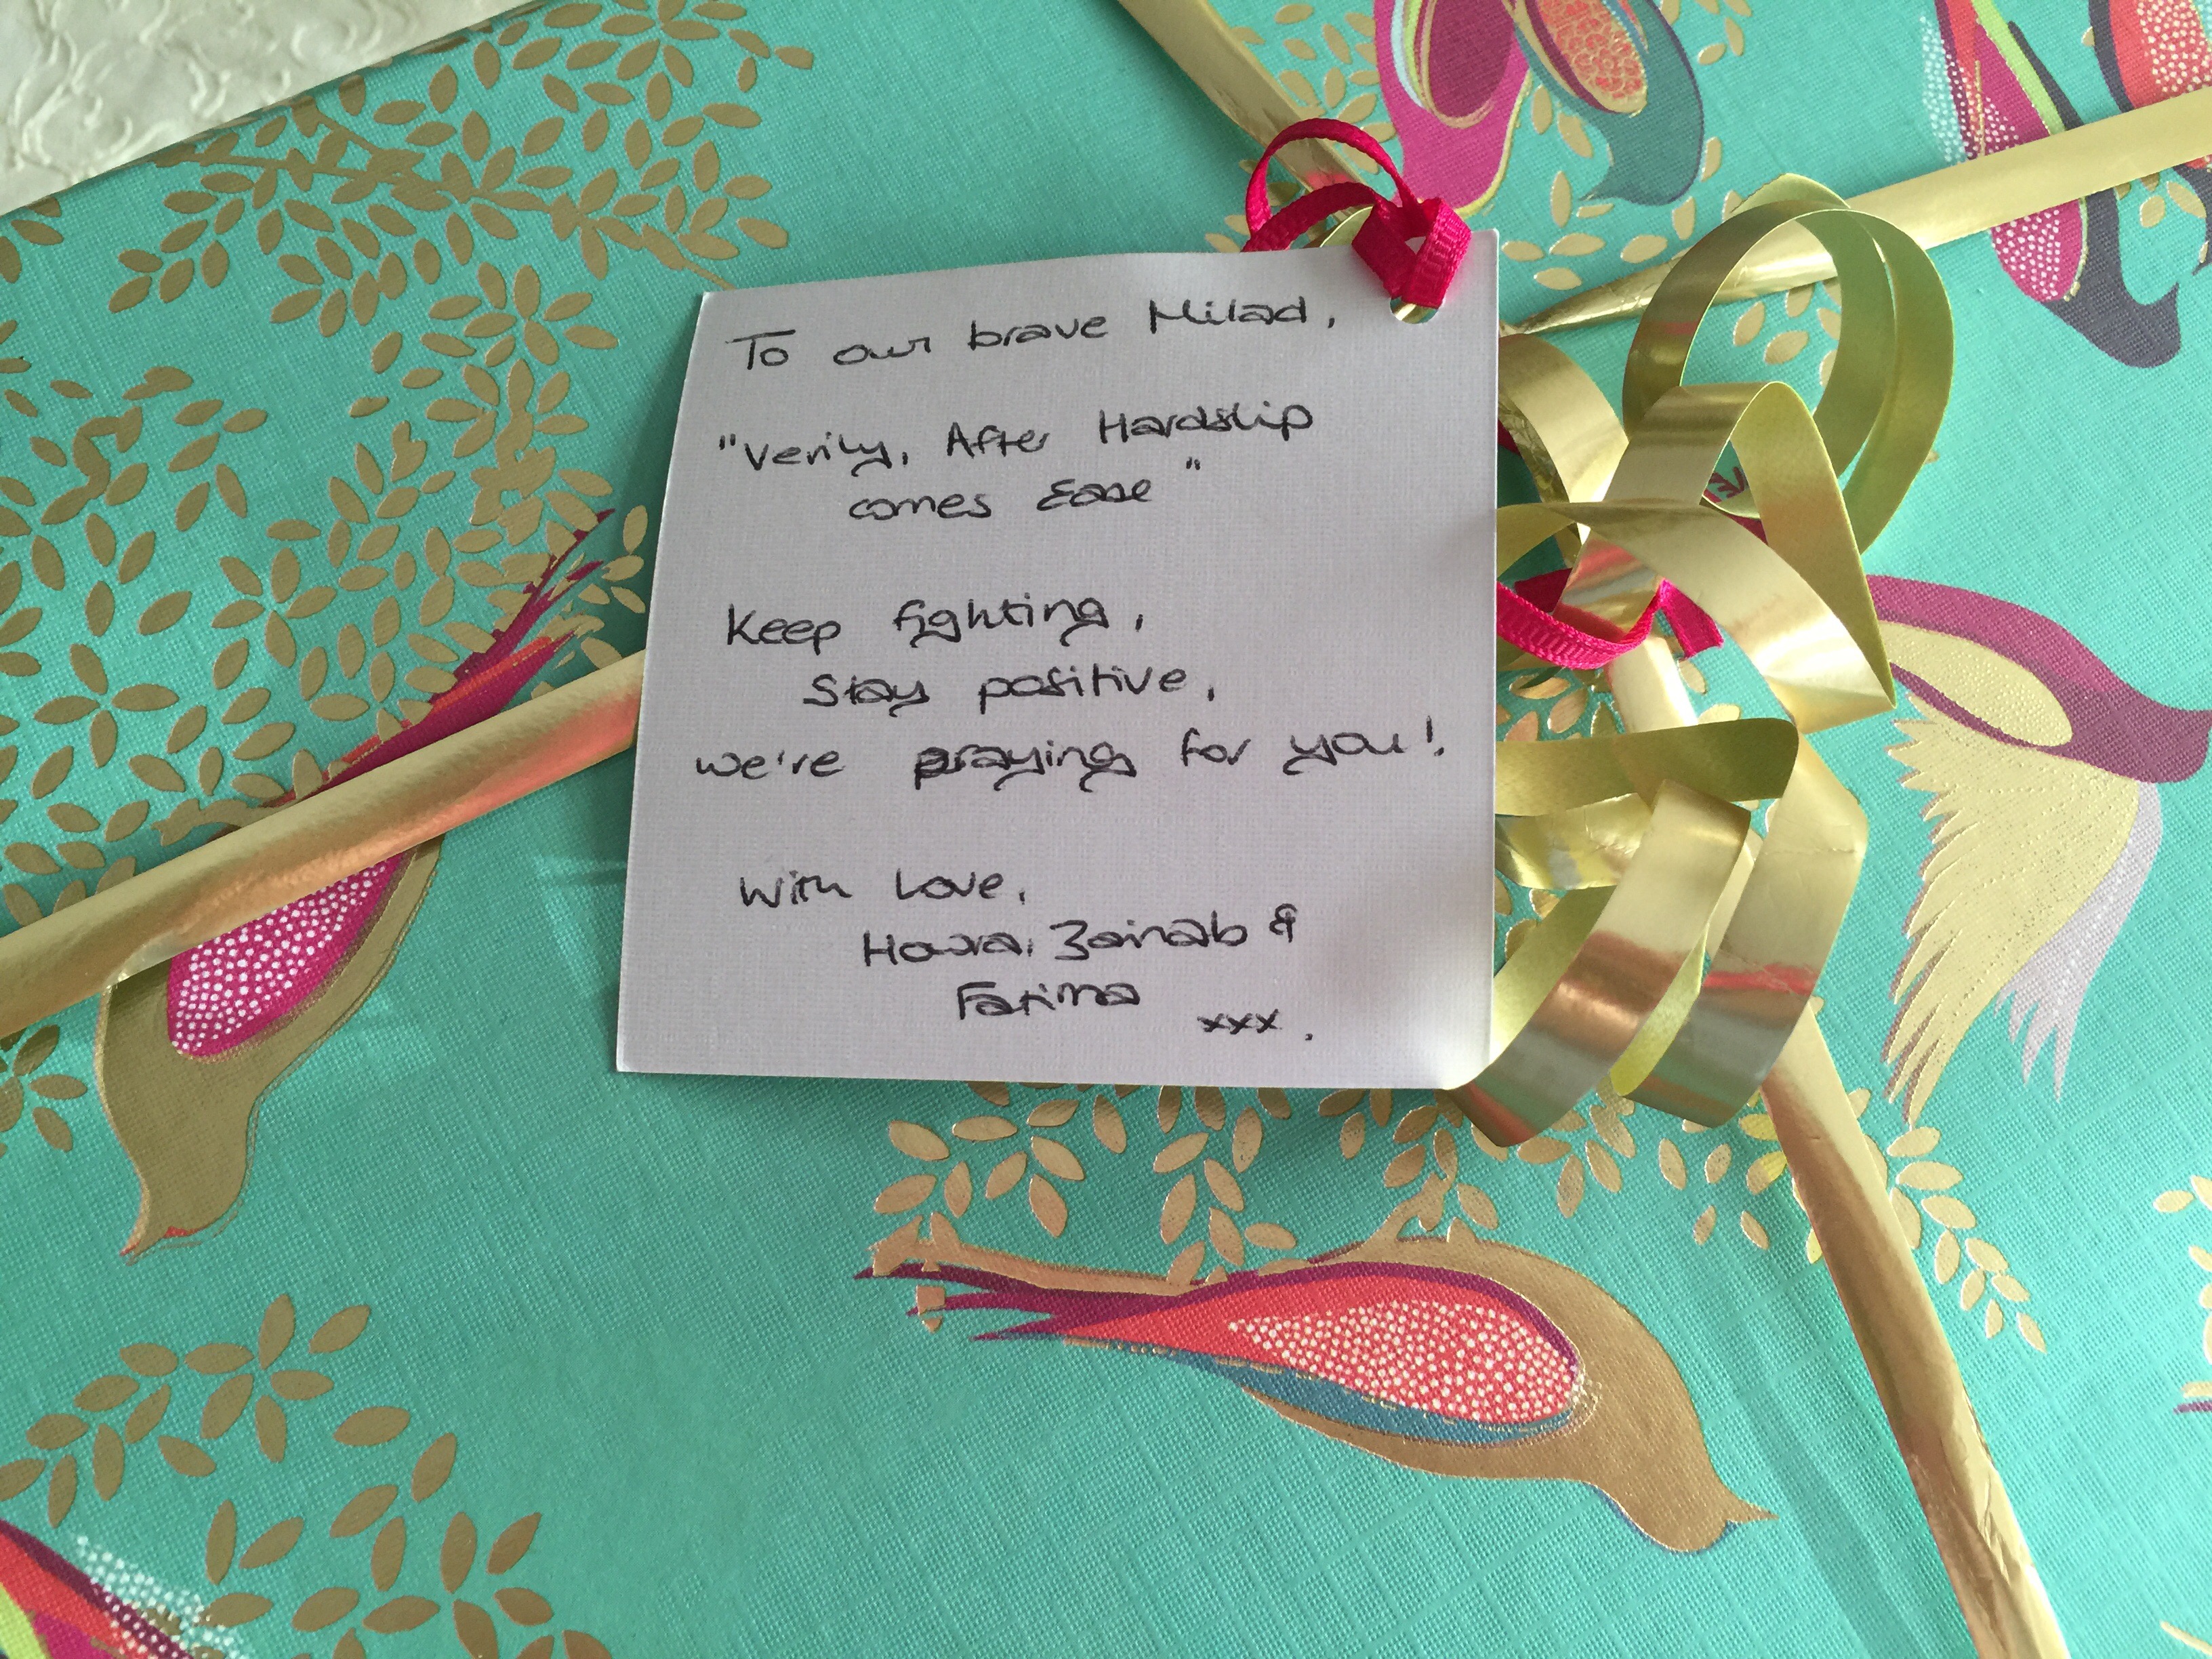 To our brave Milad,
"Verily, After Hardship
comes Ease"
Keep fighting,
Stay positive,
we're praying for you!
With Love,
Hawra, Zainab &
Fatima
xxx.